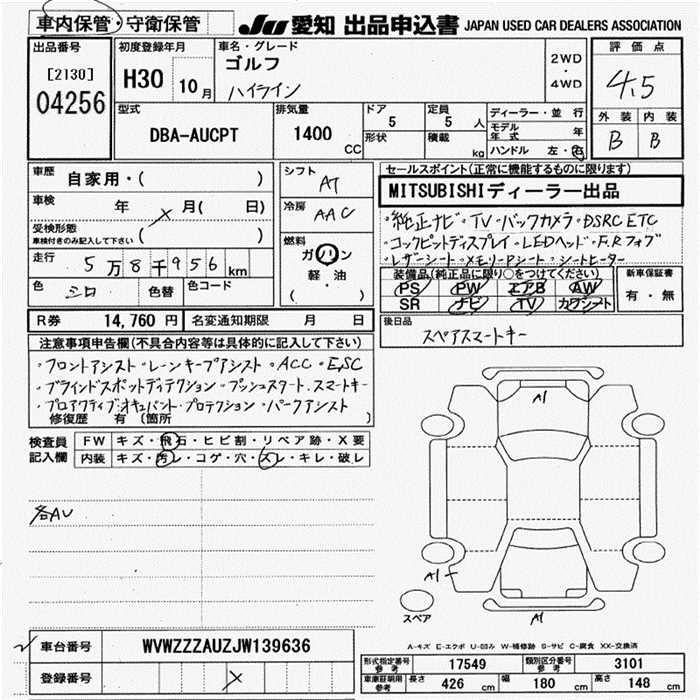 車内保管・守衛保管 JU 愛知 出品申込書 JAPAN USED CAR DEALERS ASSOCIATION
出品番号
[2130]
04256
初度登録年月
H30 10月
車名・グレード
ゴルフ
ハイライン
2WD
・
4WD
評価点
4.5
外装 内装
B B
型式
DBA-AUCPT
排気量
1400
CC
ドア
5
定員
5 人
形状
積載
kg
ディーラー・並行
モデル年式 年
ハンドル 左・右
車歴
自家用・( )
車検
年 月( 日)
受検形態
車検付きのみ記入して下さい ( )
走行
5万8千956km
色 シロ 色替 色コード
シフト
AT
冷房
AAC
燃料
ガソリン
軽・油
( )
セールスポイント(正常に機能するものに限ります)
MITSUBISHIディーラー出品
・純正ナビ・TV・バックカメラ・DSRC ETC
・コックピットディスプレイ・LEDヘッド・F.Rフォグ
・レザーシート・メモリーPシート・シートヒーター
装備品(純正品に限り○をつけてください)
PS PW エアB AW
SR ナビ TV カワシート
新車保証書
有・無
R券 14,760 円 名変通知期限 月 日
後日品
スペアスマートキー
注意事項申告欄(不具合内容等は具体的に記入して下さい)
・フロントアシスト・レーンキープアシスト・ACC・ESC
・ブラインドスポットディテクション・プッシュスタート.スマートキー
・プロアクティブ・オキュパント・プロテクション・パークアシスト
修復歴 有 (箇所 )
検査員記入欄
FW キズ・飛石・ヒビ割・リペア跡・X要
内装 キズ・汚レ・コゲ・穴・スレ・キレ・破レ
各AU
A1
A1
A1
スペア
A-キズ E-エクボ U-凹み W-補修跡 S-サビ C-腐食 XX-交換済
車台番号 WVWZZZAUZJW139636
登録番号
形式指定番号参考 17549 類別区分番号参考 3101
車庫証明用参考 長さ 426 cm 幅 180 cm 高さ 148 cm